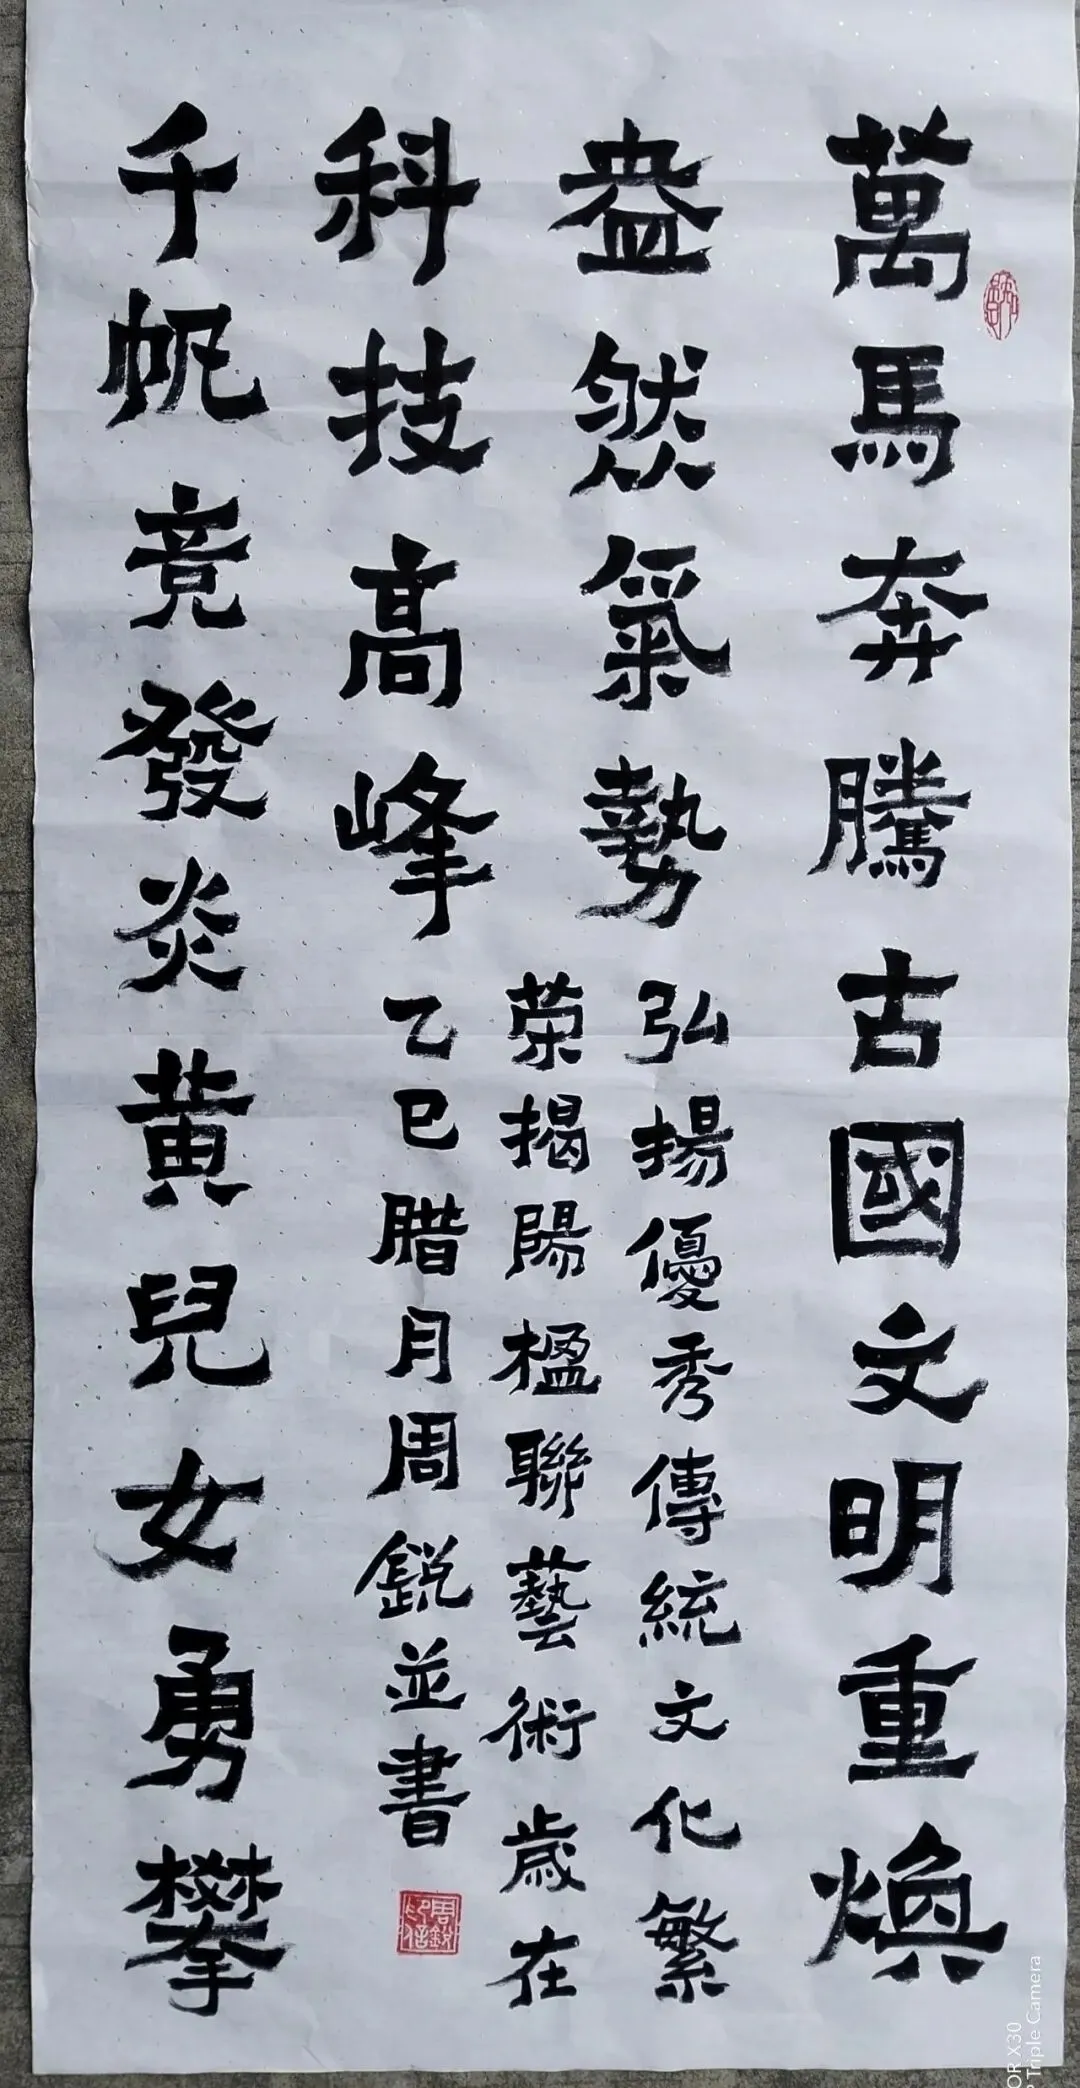 萬馬奔騰古國文明重煥
盎然氣勢
千帆竞發炎黄兒女勇攀
科技髙峰
弘揚優秀傳統文化繁
荣揭陽楹聯藝術歲在
乙巳腊月周銳並書
周銳印信
OR X30
Triple Camera